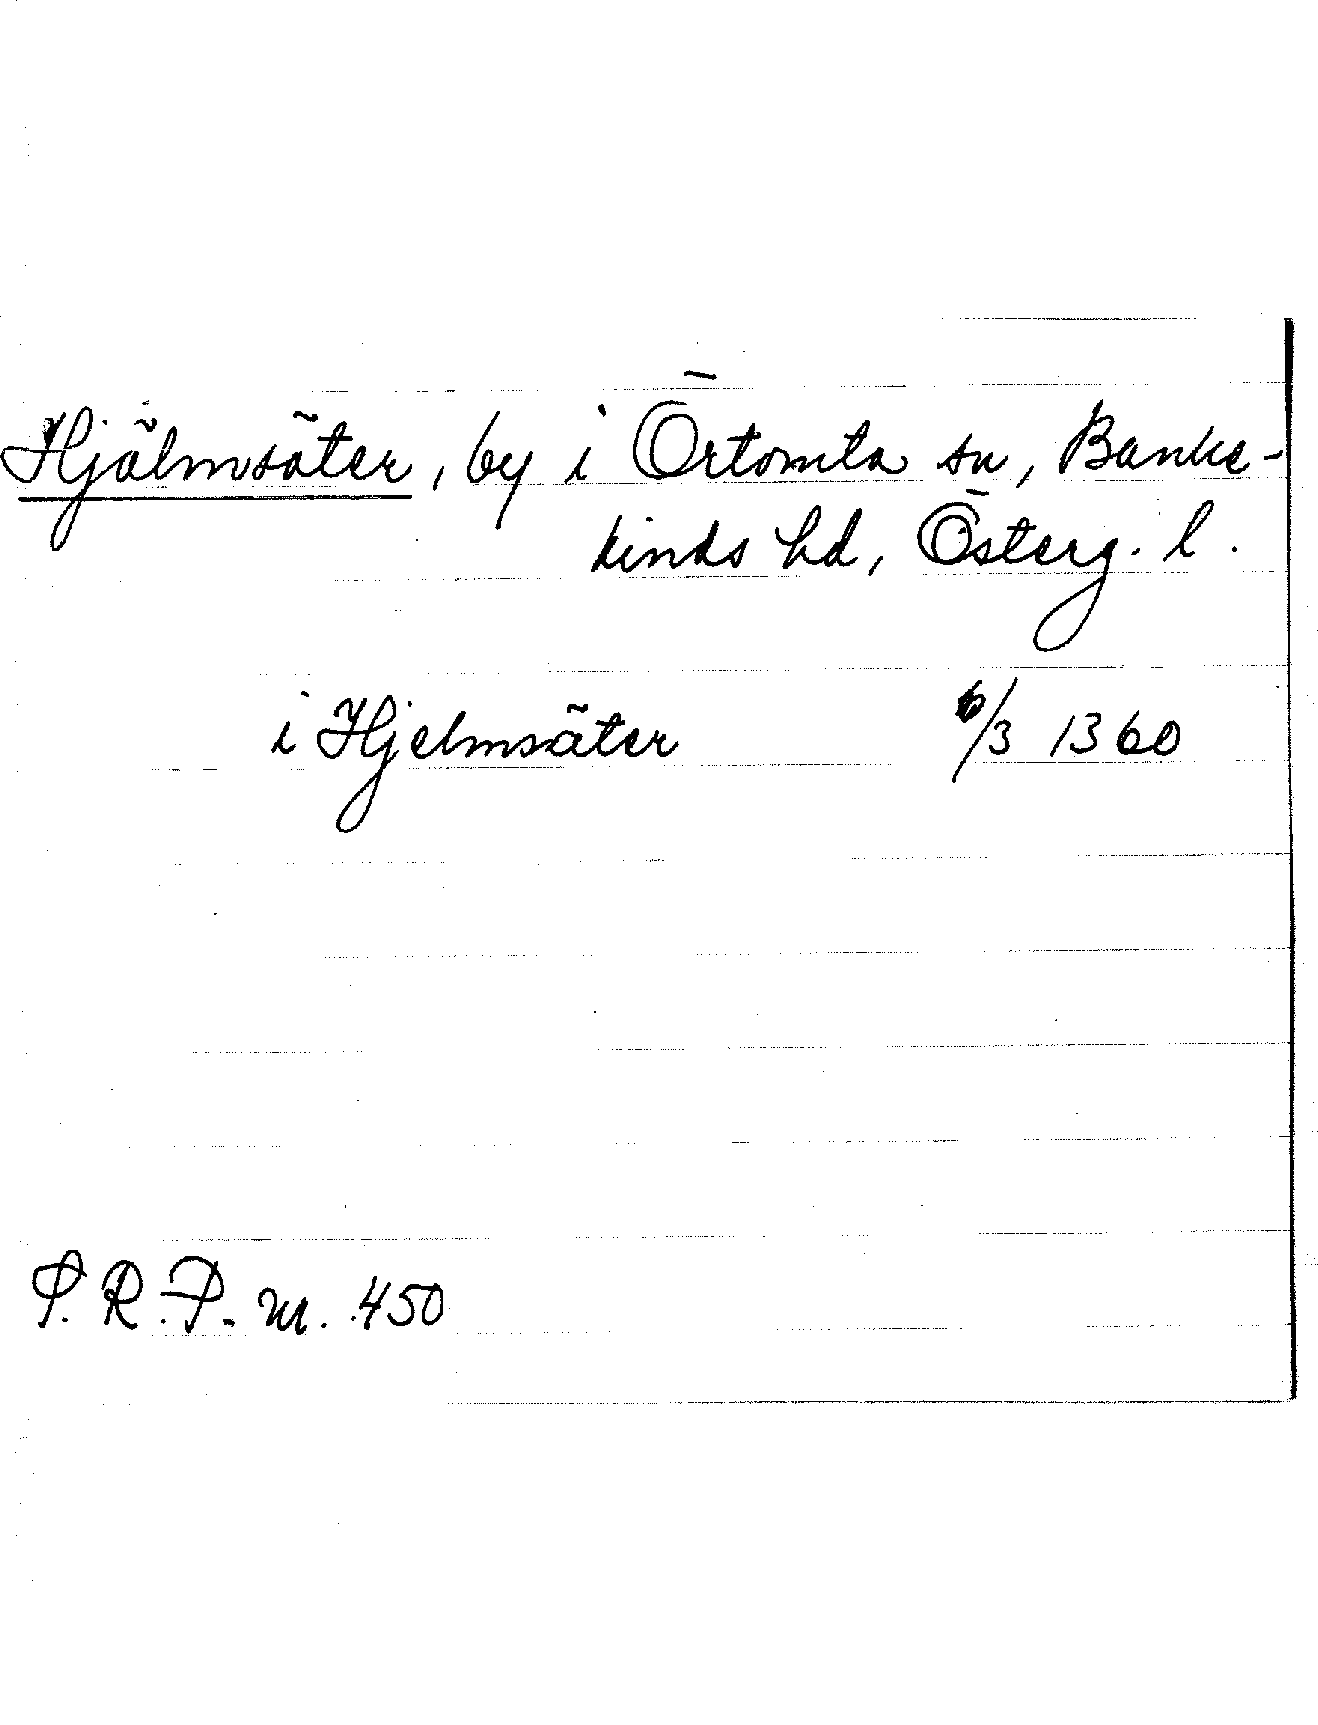 Hjälmsäter, by i Örtomta sn, Banke-
kinds hd, Österg. l.
i Hjelmsäter 6/3 1360
S. R. P. nr. 450